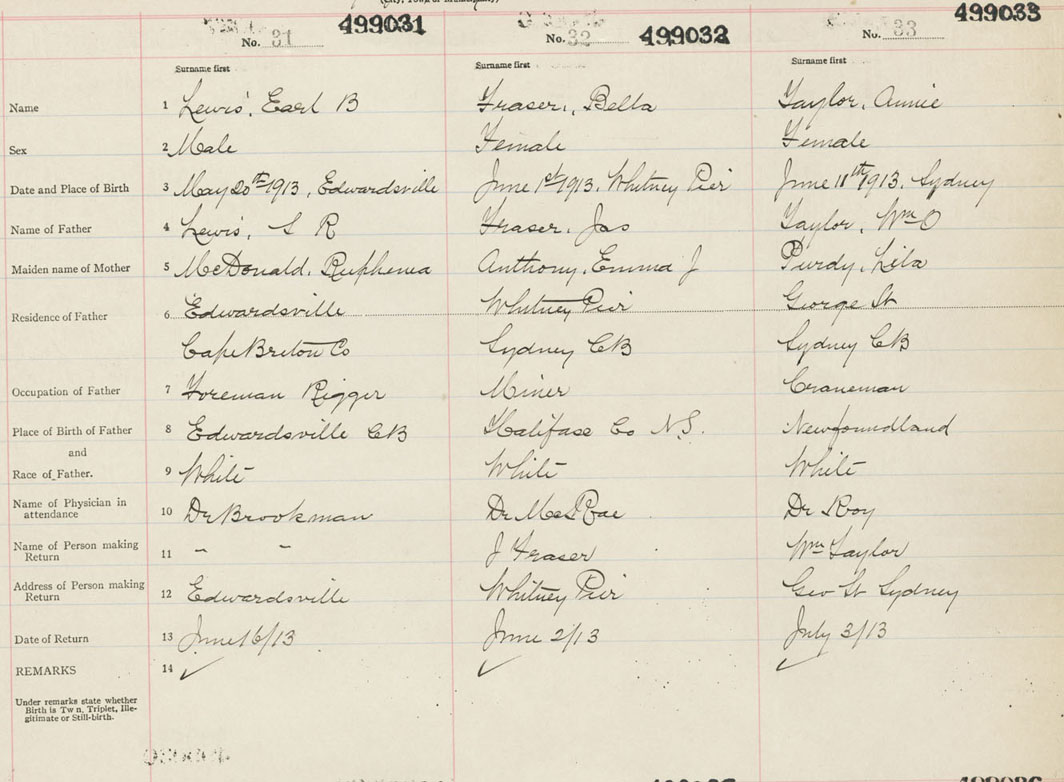 (City, Town or Municipality)
No. 31 499031 No. 32 499032 No. 33 499033
Surname first Surname first Surname first
Name 1 Lewis, Earl B Fraser, Bella Taylor, Annie
Sex 2 Male Female Female
Date and Place of Birth 3 May 20th 1913, Edwardsville June 1st 1913, Whitney Pier June 11th 1913, Sydney
Name of Father 4 Lewis, S R Fraser, Jas Taylor, Wm O
Maiden name of Mother 5 McDonald, Ruphenia Anthony, Emma J Purdy, Lila
Residence of Father 6 Edwardsville Whitney Pier George St
Cape Breton Co Sydney CB Sydney CB
Occupation of Father 7 Foreman Rigger Miner Craneman
Place of Birth of Father 8 Edwardsville CB Halifax Co N.S. Newfoundland
and
Race of Father. 9 White White White
Name of Physician in attendance 10 Dr Brookman Dr MacRae Dr Roy
Name of Person making Return 11 " " J Fraser Wm Taylor
Address of Person making Return 12 Edwardsville Whitney Pier Geo St Sydney
Date of Return 13 June 16/13 June 2/13 July 3/13
REMARKS 14 ✓ ✓ ✓
Under remarks state whether
Birth is Twin, Triplet, Ille-
gitimate or Still-birth.